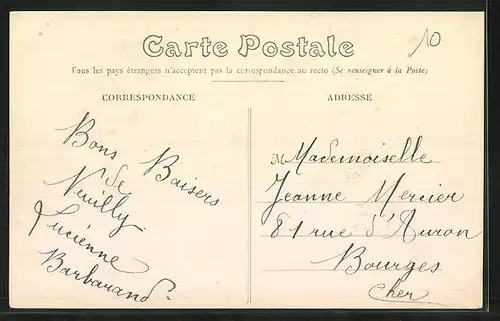 Carte Postale
10
Tous les pays étrangers n'acceptent pas la correspondance au recto (Se renseigner à la Poste)
CORRESPONDANCE
Bons Baisers
de
Neuilly
Lucienne
Barbarand
ADRESSE
M Mademoiselle
Jeanne Mercier
81 rue d'Auron
Bourges
Cher